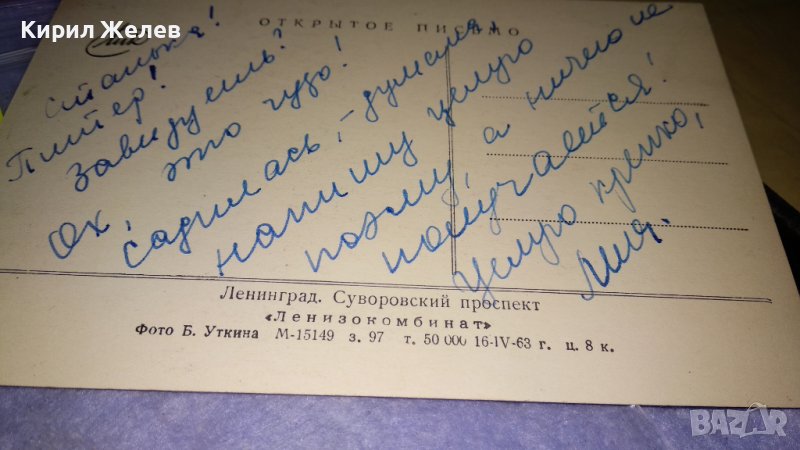 Кирил Желев
ОТКРЫТОЕ ПИСЬМО
Сталька!
Питер!
Завидуешь?
Ох, это чудо!
Садилась, – думала,
напишу целую
поэму, а ничего не
получается!
Целую крепко,
Лия.
Ленинград. Суворовский проспект
«Ленизокомбинат»
Фото Б. Уткина М-15149 з. 97 т. 50 000 16-IV-63 г. ц. 8 к.
BAZAR